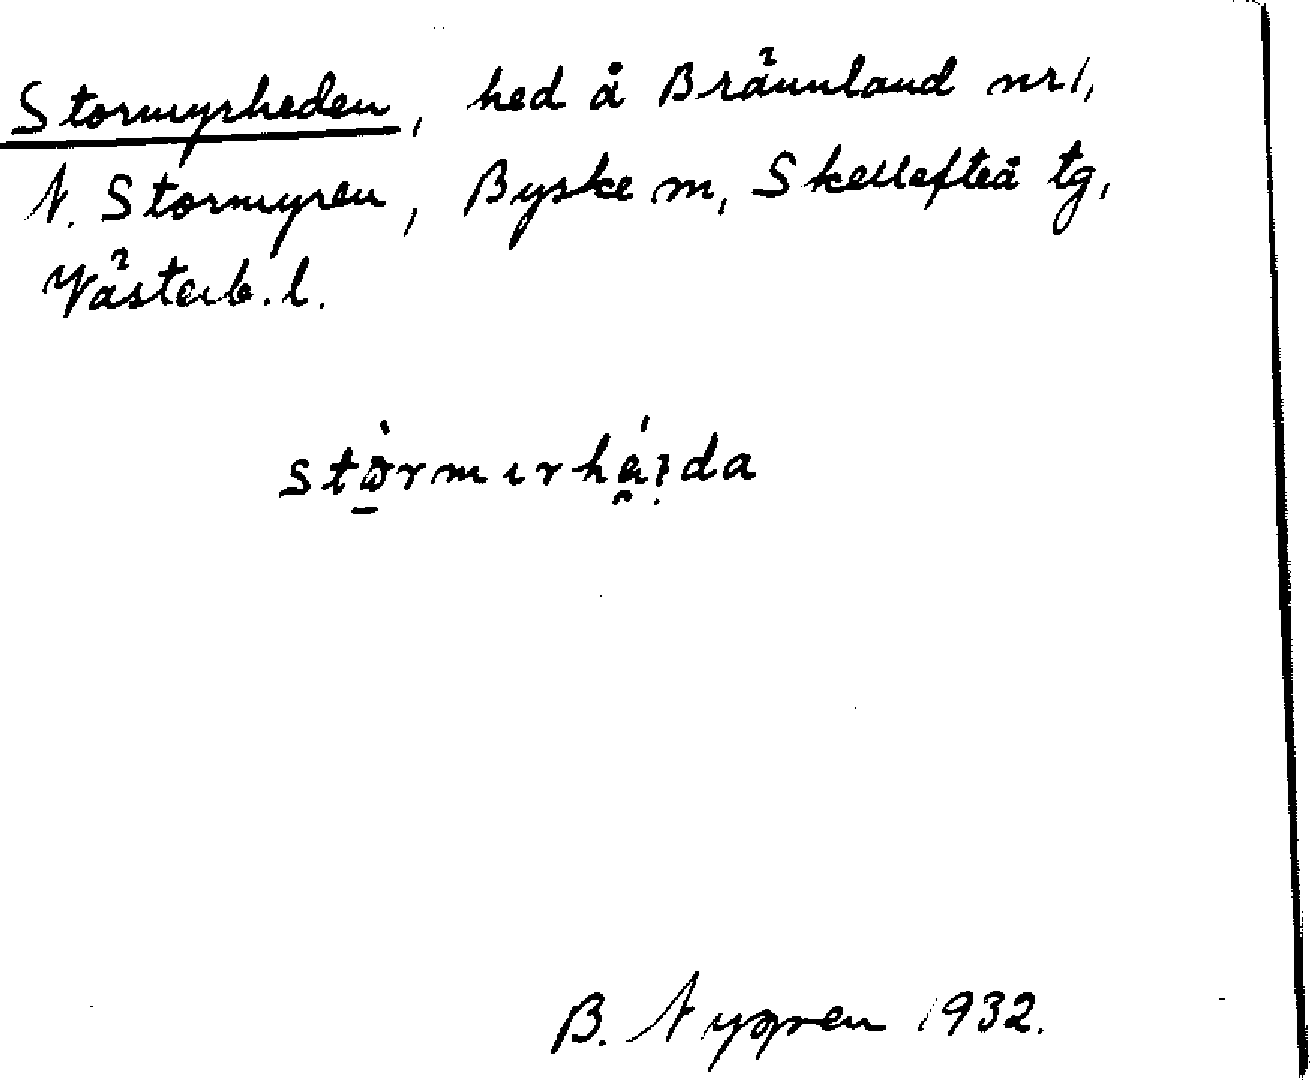 Stormyrheden, hed å Brännland nr 1,
N. Stormyren, Byske sn, Skellefteå tg,
Västerb. l.
B. Nygren 1932.